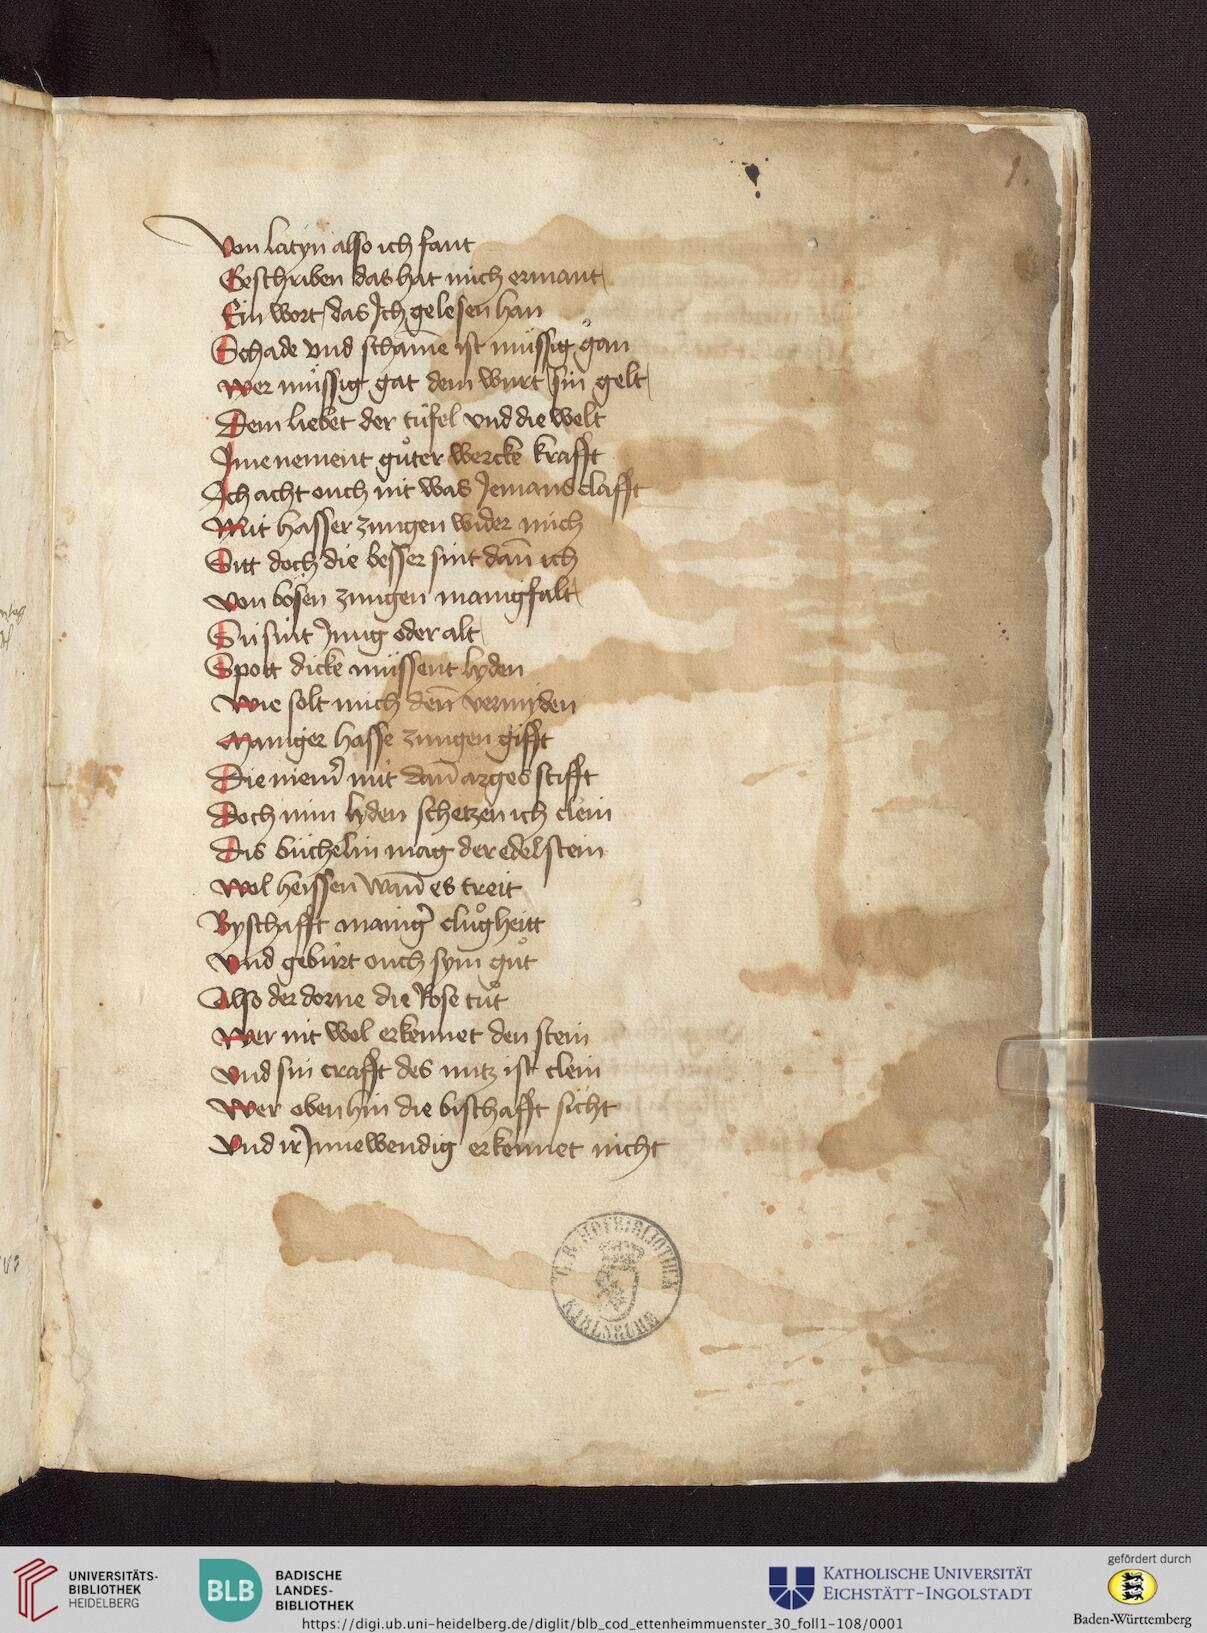 1.
Von latyn also ich fant
Geschriben das hat mich ermant
Ein wort das Ich gelesen han
Schade vnd schame ist müssig gan
wer müssig gat dem wurt sin gelt
Dem liebet der tüfel vnd die welt
Ime nement guͦter wercke krafft
Ich acht ouch nit was Jemans clafft
Mit hasser zungen wider mich
Sitt doch die besser sint dañ ich
von bösen zungen manigfalt
Sü sint Jung oder alt
Spott dicke müssent lyden
wie solt mich deñ vermyden
maniger hasse zungen gifft
Die niem̃ mit dañ arges stifft
Doch min lyden schetzen ich clein
Dis büchelin mag der edelstein
wol heissen wañ es treit
Byschafft manig̉ cluͦgheitt
vnd gebürt ouch sym guͦt
Also der dorne die Rose tuͦt
wer nit wol erkennet den stein
vnd sin crafft des nutz ist clein
wer oben hin die bischafft sicht
Vnd ir Innewendig erkennet nicht
G. B. HOFBIBLIOTHEK
KARLSRUHE
UNIVERSITÄTS-
BIBLIOTHEK
HEIDELBERG
BLB
BADISCHE
LANDES-
BIBLIOTHEK
KATHOLISCHE UNIVERSITÄT
EICHSTÄTT-INGOLSTADT
gefördert durch
Baden-Württemberg
https://digi.ub.uni-heidelberg.de/diglit/blb_cod_ettenheimmuenster_30_foll1-108/0001